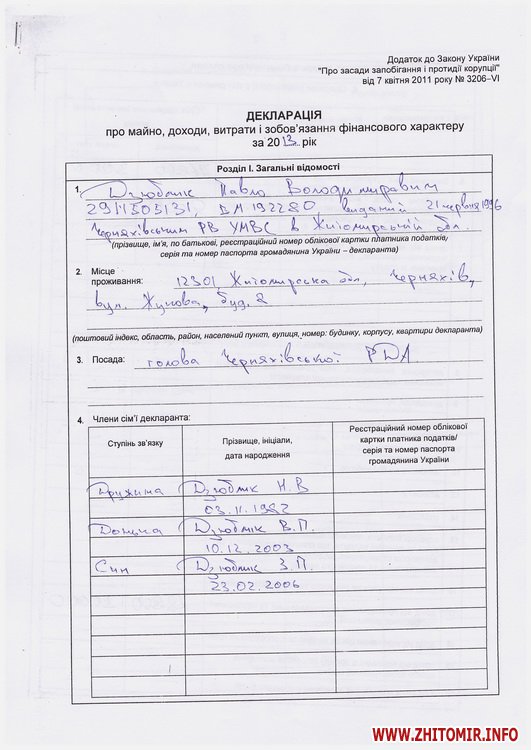 Додаток до Закону України
"Про засади запобігання і протидії корупції"
від 7 квітня 2011 року № 3206–VI
ДЕКЛАРАЦІЯ
про майно, доходи, витрати і зобов'язання фінансового характеру
за 2013 рік
Розділ І. Загальні відомості
1. Дзюблик Павло Володимирович
2911503131, ВМ 192280 виданий 21 червня 1996
Черняхівським РВ УМВС в Житомирській обл
(прізвище, ім'я, по батькові, реєстраційний номер облікової картки платника податків/
серія та номер паспорта громадянина України – декларанта)
2. Місце
проживання: 12301, Житомирська обл, Черняхів,
вул. Жукова, буд. 2
(поштовий індекс, область, район, населений пункт, вулиця, номер: будинку, корпусу, квартири декларанта)
3. Посада: голова Черняхівської РДА
4. Члени сім'ї декларанта:
Ступінь зв'язку
Прізвище, ініціали,
дата народження
Реєстраційний номер облікової
картки платника податків/
серія та номер паспорта
громадянина України
Дружина Дзюблик Н.В
03.11.1982
Дочка Дзюблик В.П.
10.12.2003
Син Дзюблик З.П.
23.02.2006
WWW.ZHITOMIR.INFO